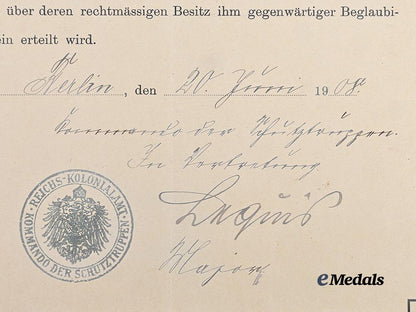 über deren rechtmässigen Besitz ihm gegenwärtiger Beglaubi-
ein erteilt wird.
Berlin, den 20. Juni 1908.
Kommando der Schutztruppen.
In Vertretung
Lequis
Major
REICHS-KOLONIALAMT
KOMMANDO DER SCHUTZTRUPPEN
eMedals